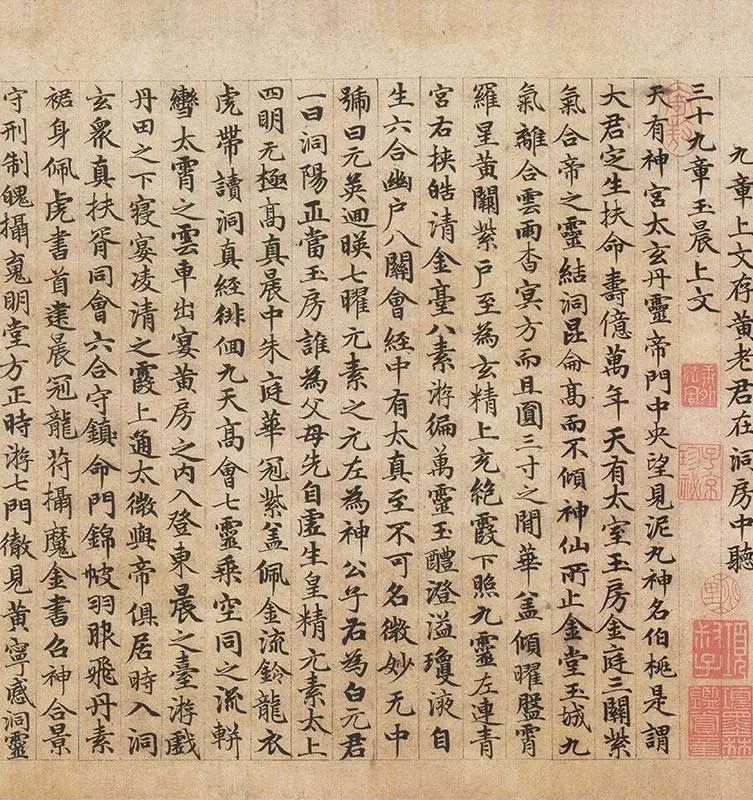 九章上文存黄老君在洞房中聽
三十九章玉晨上文
天有神宮太玄丹靈帝門中央望見泥丸神名伯桃是謂
大君定生扶命壽億萬年天有太室玉房金庭三關紫
氣合帝之靈結洞昆侖高而不傾神仙所止金堂玉城九
氣離合雲雨杳冥方而且圓三寸之間華盖傾曜盤霄
羅呈黄闕紫户至為玄精上充絶霞下照九靈左連青
宮右挾皓清金臺八素游徧萬靈玉醴澄溢瓊液自
生六合幽户八關會經中有太真至不可名微妙无中
號曰元英迴暎七曜元素之元左為神公子右為白元君
一曰洞陽正當玉房誰為父母先自虛生皇精元素太上
四明元極高真晨中朱庭華冠紫盖佩金流鈴龍衣
虎帶讀洞真經徘佪九天高會七靈乘空同之流軿
轡太霄之雲車出宴黄房之内入登東晨之臺游戲
丹田之下寢宴凌清之霞上通太微與帝俱居時入洞
玄衆真扶胥同會六合守鎮命門錦帔羽服飛丹素
裙身佩虎書首建晨冠龍符攝魔金書召神合景
守刑制魄攝魂明堂方正時游七門徹見黄寧感洞靈
子京珍祕
項墨林鑑賞章